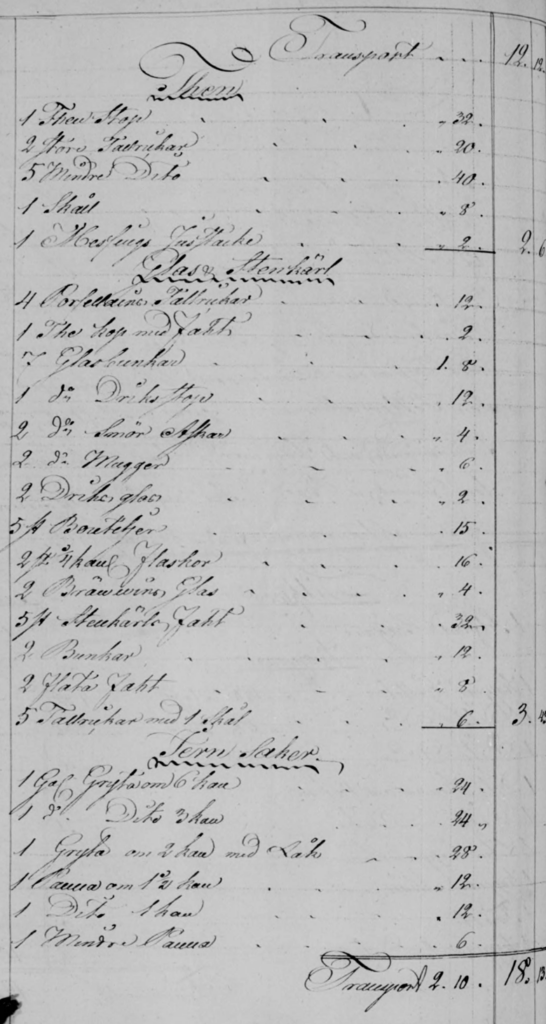 Transport . . . 12. 12.
Thenn
1 Thenn Stop . . . " 32.
2 Större Tallrickar . . . " 20.
5 Mindre Dito . . . " 40.
1 Skåll . . . " 8.
1 Messings Jusstacke . . . " 2. 2. 6
Glas & Stenkärl
4 Porsellains Tallrickar . . . " 12.
1 The kop med faht . . . " 2.
7 Glasbunkar . . . 1. 8.
1 do Dricks Stop . . . " 12.
2 do Smör Askar . . . " 4.
2 do Mugger . . . " 6.
2 Dricks glas . . . " 2.
5 st Bouteljer . . . " 15.
2 st kan Flaskor . . . " 16.
2 Bränwins Glas . . . " 4.
5 st Stenkärls faht . . . " 32.
2 Bunkar . . . " 12.
2 flata faht . . . " 8.
5 Tallrickar med 1 Skål . . . " 6. 3.
Jern Saker.
1 Gryta om 6 kan . . . " 24.
1 do Dito 3 kan . . . " 24.
1 Gryta om 2 kan med Låk . . . " 28.
1 Panna om 1½ kan . . . " 12.
1 Dito 1 kan . . . " 12.
1 Mindre Panna . . . " 6.
Transport 2. 10. 18. 13